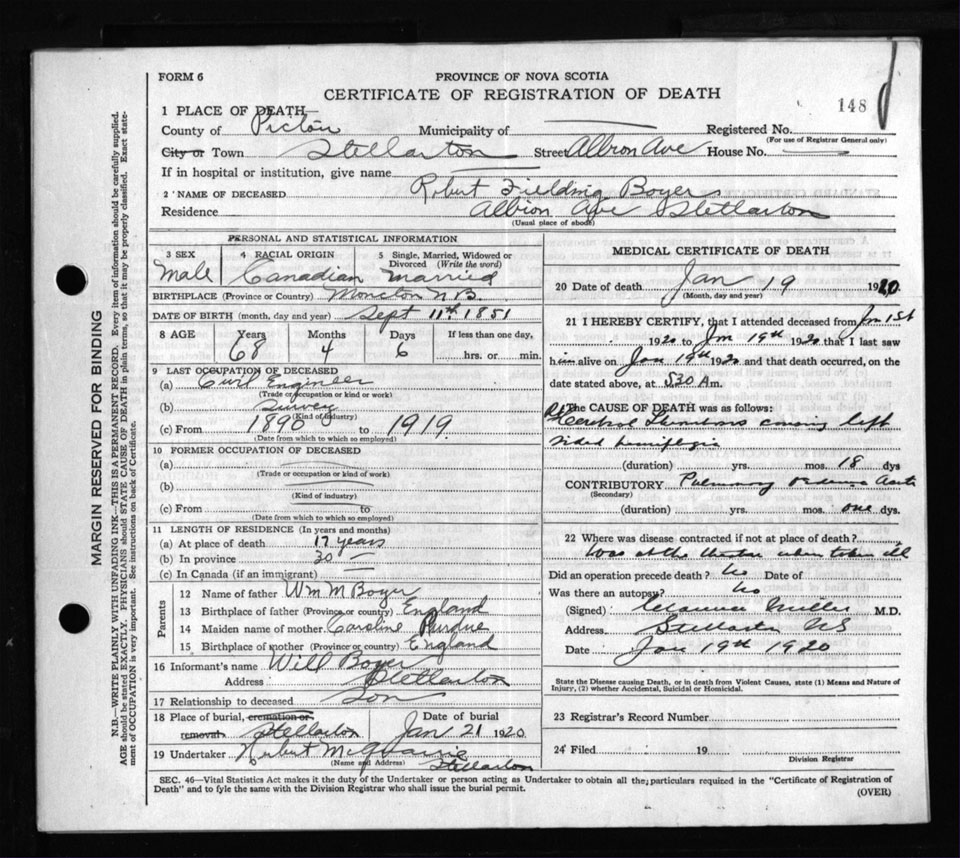 FORM 6
PROVINCE OF NOVA SCOTIA
CERTIFICATE OF REGISTRATION OF DEATH
148
1 PLACE OF DEATH—
County of Pictou Municipality of Registered No.
(For use of Registrar General only)
City or Town Stellarton Street Albion Ave House No.
If in hospital or institution, give name
2 NAME OF DECEASED Robert Fielding Boyer
Residence Albion Ave Stellarton
(Usual place of abode)
PERSONAL AND STATISTICAL INFORMATION
3 SEX Male
4 RACIAL ORIGIN Canadian
5 Single, Married, Widowed or Divorced (Write the word) Married
BIRTHPLACE (Province or Country) Moncton N.B.
DATE OF BIRTH (month, day and year) Sept 11th 1851
8 AGE Years Months Days If less than one day,
68 4 6 hrs. or min.
9 LAST OCCUPATION OF DECEASED
(a) Civil Engineer
(Trade or occupation or kind or work)
(b) Survey
(Kind of industry)
(c) From 1890 to 1919.
(Date from which to which so employed)
10 FORMER OCCUPATION OF DECEASED
(a)
(Trade or occupation or kind of work)
(b)
(Kind of industry)
(c) From to
(Date from which to which so employed)
11 LENGTH OF RESIDENCE (In years and months)
(a) At place of death 17 years
(b) In province 30
(c) In Canada (if an immigrant)
Parents
12 Name of father Wm M Boyer
13 Birthplace of father (Province or country) England
14 Maiden name of mother Caroline Purdue
15 Birthplace of mother (Province or country) England
16 Informant's name Will Boyer
Address Stellarton
17 Relationship to deceased Son
18 Place of burial, cremation or Date of burial
removal Stellarton Jan 21 1920
19 Undertaker McQuarrie
(Name and Address) Stellarton
MEDICAL CERTIFICATE OF DEATH
20 Date of death Jan 19 1920.
(Month, day and year)
21 I HEREBY CERTIFY, that I attended deceased from Jan 1st
1920 to Jan 19th 1920 that I last saw
him alive on Jan 19th 1920 and that death occurred, on the
date stated above, at 5.30 A m.
The CAUSE OF DEATH was as follows:
Cerebral Thrombosis causing left
sided hemiplegia
(duration) yrs. mos. 18 dys
CONTRIBUTORY Pulmonary oedema Acute
(Secondary)
(duration) yrs. mos. one dys.
22 Where was disease contracted if not at place of death?
Was at the theatre when taken ill
Did an operation precede death? No Date of
Was there an autopsy? No
(Signed) Clarence Miller M.D.
Address Stellarton NS
Date Jan 19th 1920
State the Disease causing Death, or in death from Violent Causes, state (1) Means and Nature of
Injury, (2) whether Accidental, Suicidal or Homicidal.
23 Registrar's Record Number
24 Filed 19
Division Registrar
SEC. 46—Vital Statistics Act makes it the duty of the Undertaker or person acting as Undertaker to obtain all the particulars required in the "Certificate of Registration of
Death" and to fyle the same with the Division Registrar who shall issue the burial permit.
(OVER)
MARGIN RESERVED FOR BINDING
N.B.—WRITE PLAINLY WITH UNFADING INK—THIS IS A PERMANENT RECORD. Every item of information should be carefully supplied.
AGE should be stated EXACTLY. PHYSICIANS should STATE CAUSE OF DEATH in plain terms, so that it may be properly classified. Exact state-
ment of OCCUPATION is very important. See instructions on back of Certificate.